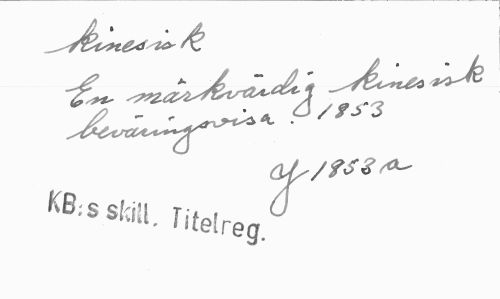 kinesisk
En märkvärdig kinesisk
beväringsvisa. 1853
Y 1853 a
KB:s skill. Titelreg.